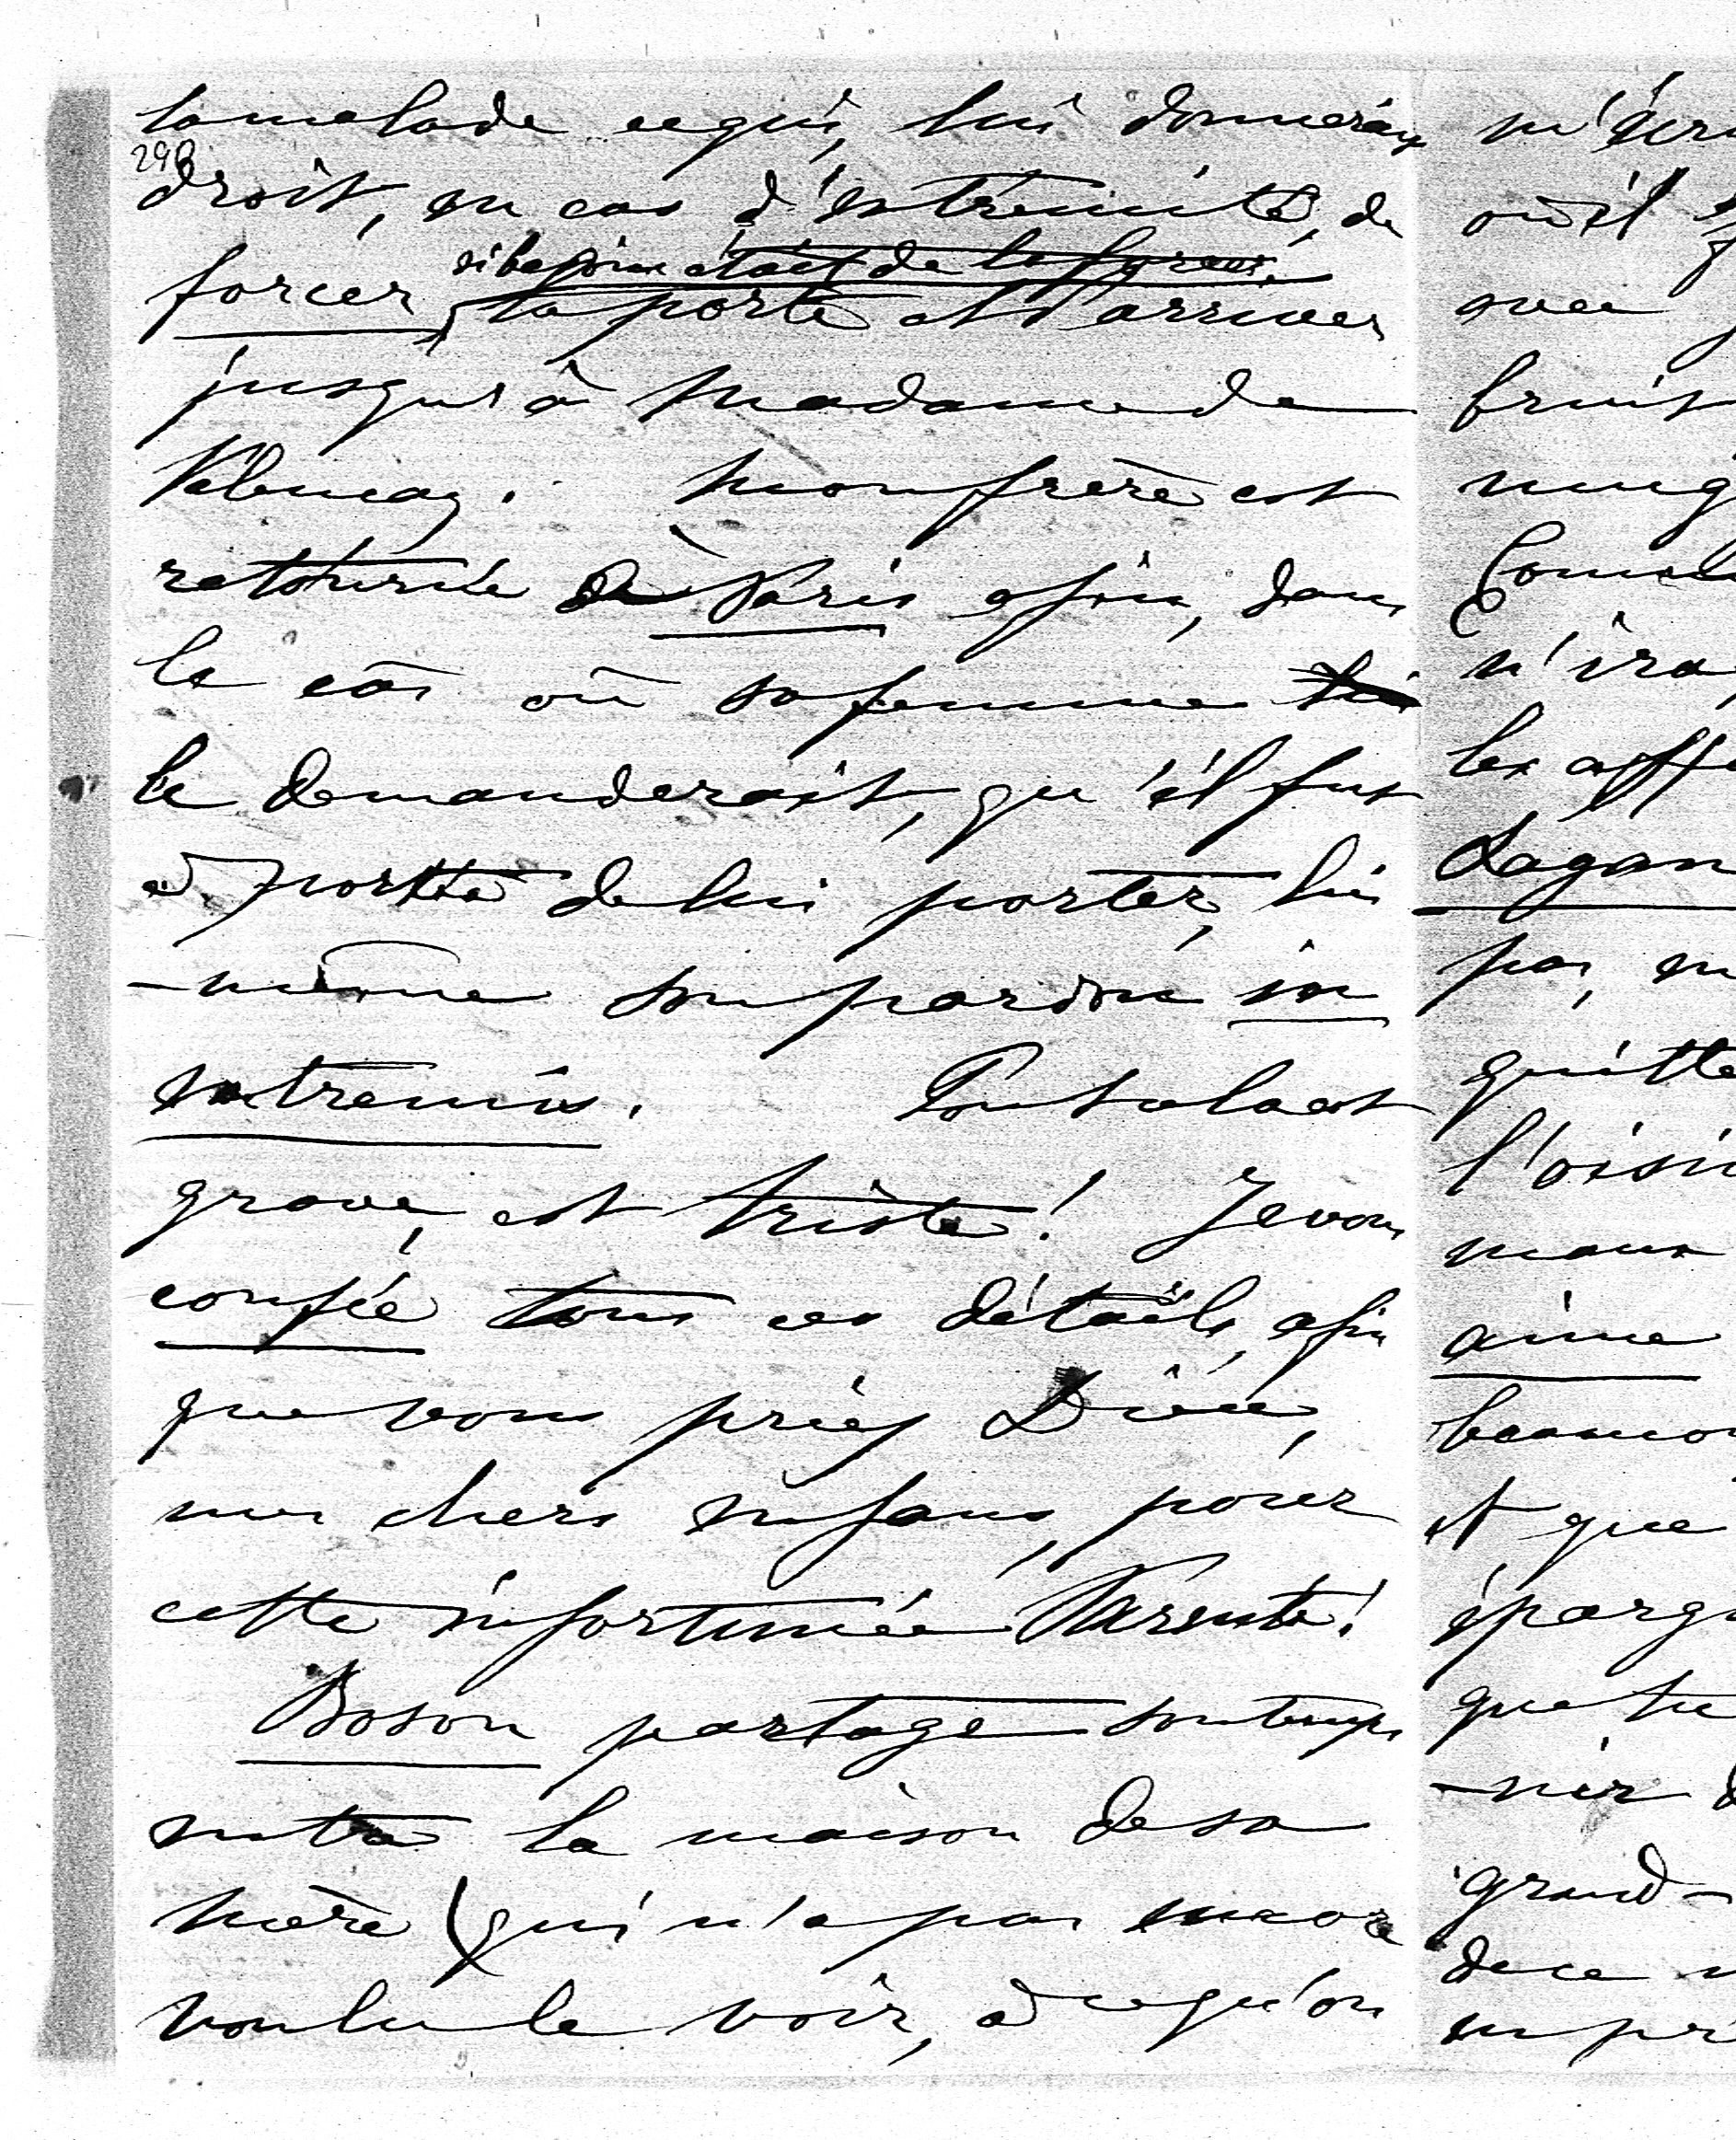 la malade ce qui, lui donnerait
298
droit, en cas d'extrémité, de
si besoin était de la forcer,
forcer la porte et d'arriver
jusqu'à Madame de
Valençay. Mon frère est
retourné à Paris afin, dans
le cas où sa femme lui
le demanderait, qu'il fut
à portée de lui porter, lui
-même son pardon in
extremis. Tout cela est
grave, est triste! Je vous
confie tous ces détails, afin
que vous priez Dieu,
mes chers enfans, pour
cette infortunée Parente!
Boson partage son temps
entre la maison de sa
mère (qui n'a pas encore
voulu le voir, à ce qu'on
m'écri
où il
avec
bruit
n'ira
les affa
pas, en
quitte
l'oisi
maux
aime
beaucou
et que
épargn
que tu
-nir d
grand-
de ce